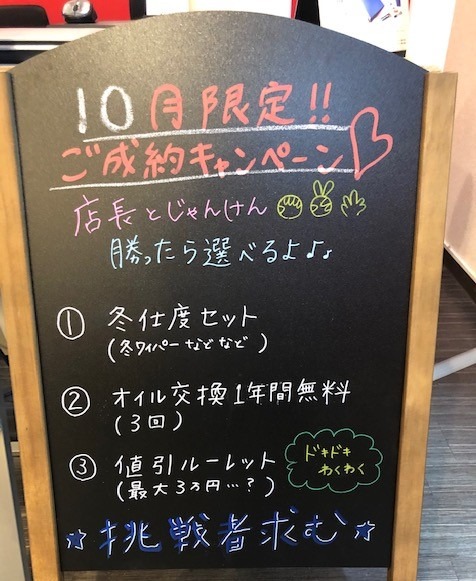 10月限定!!
ご成約キャンペーン
店長とじゃんけん
勝ったら選べるよ♪♪
① 冬仕度セット
(冬ワイパーなどなど)
② オイル交換1年間無料
(3回)
③ 値引ルーレット
(最大3万円…?)
ドキドキ
わくわく
☆挑戦者求む☆